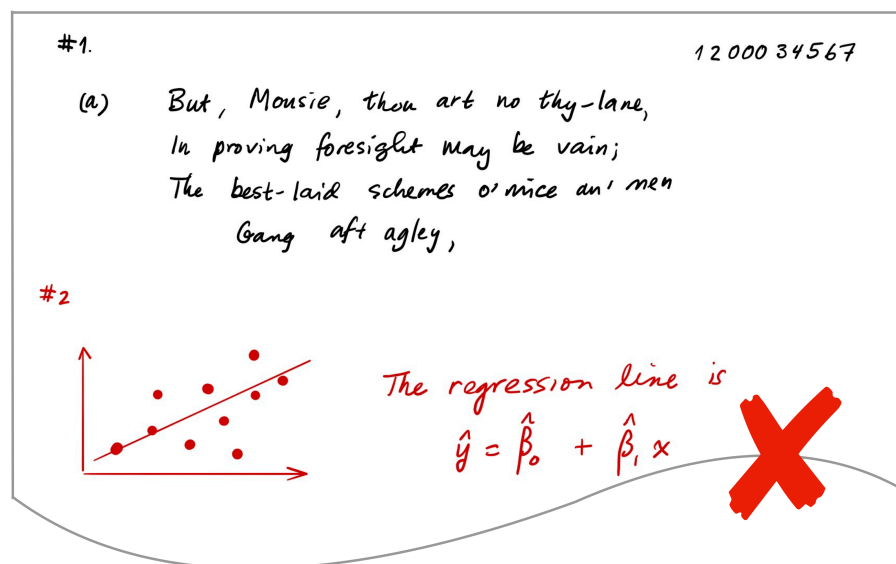 #1.
12000 34567
(a) But, Mousie, thou art no thy-lane,
In proving foresight may be vain;
The best-laid schemes o' mice an' men
Gang aft agley,
#2
The regression line is
ŷ = β̂₀ + β̂₁ x